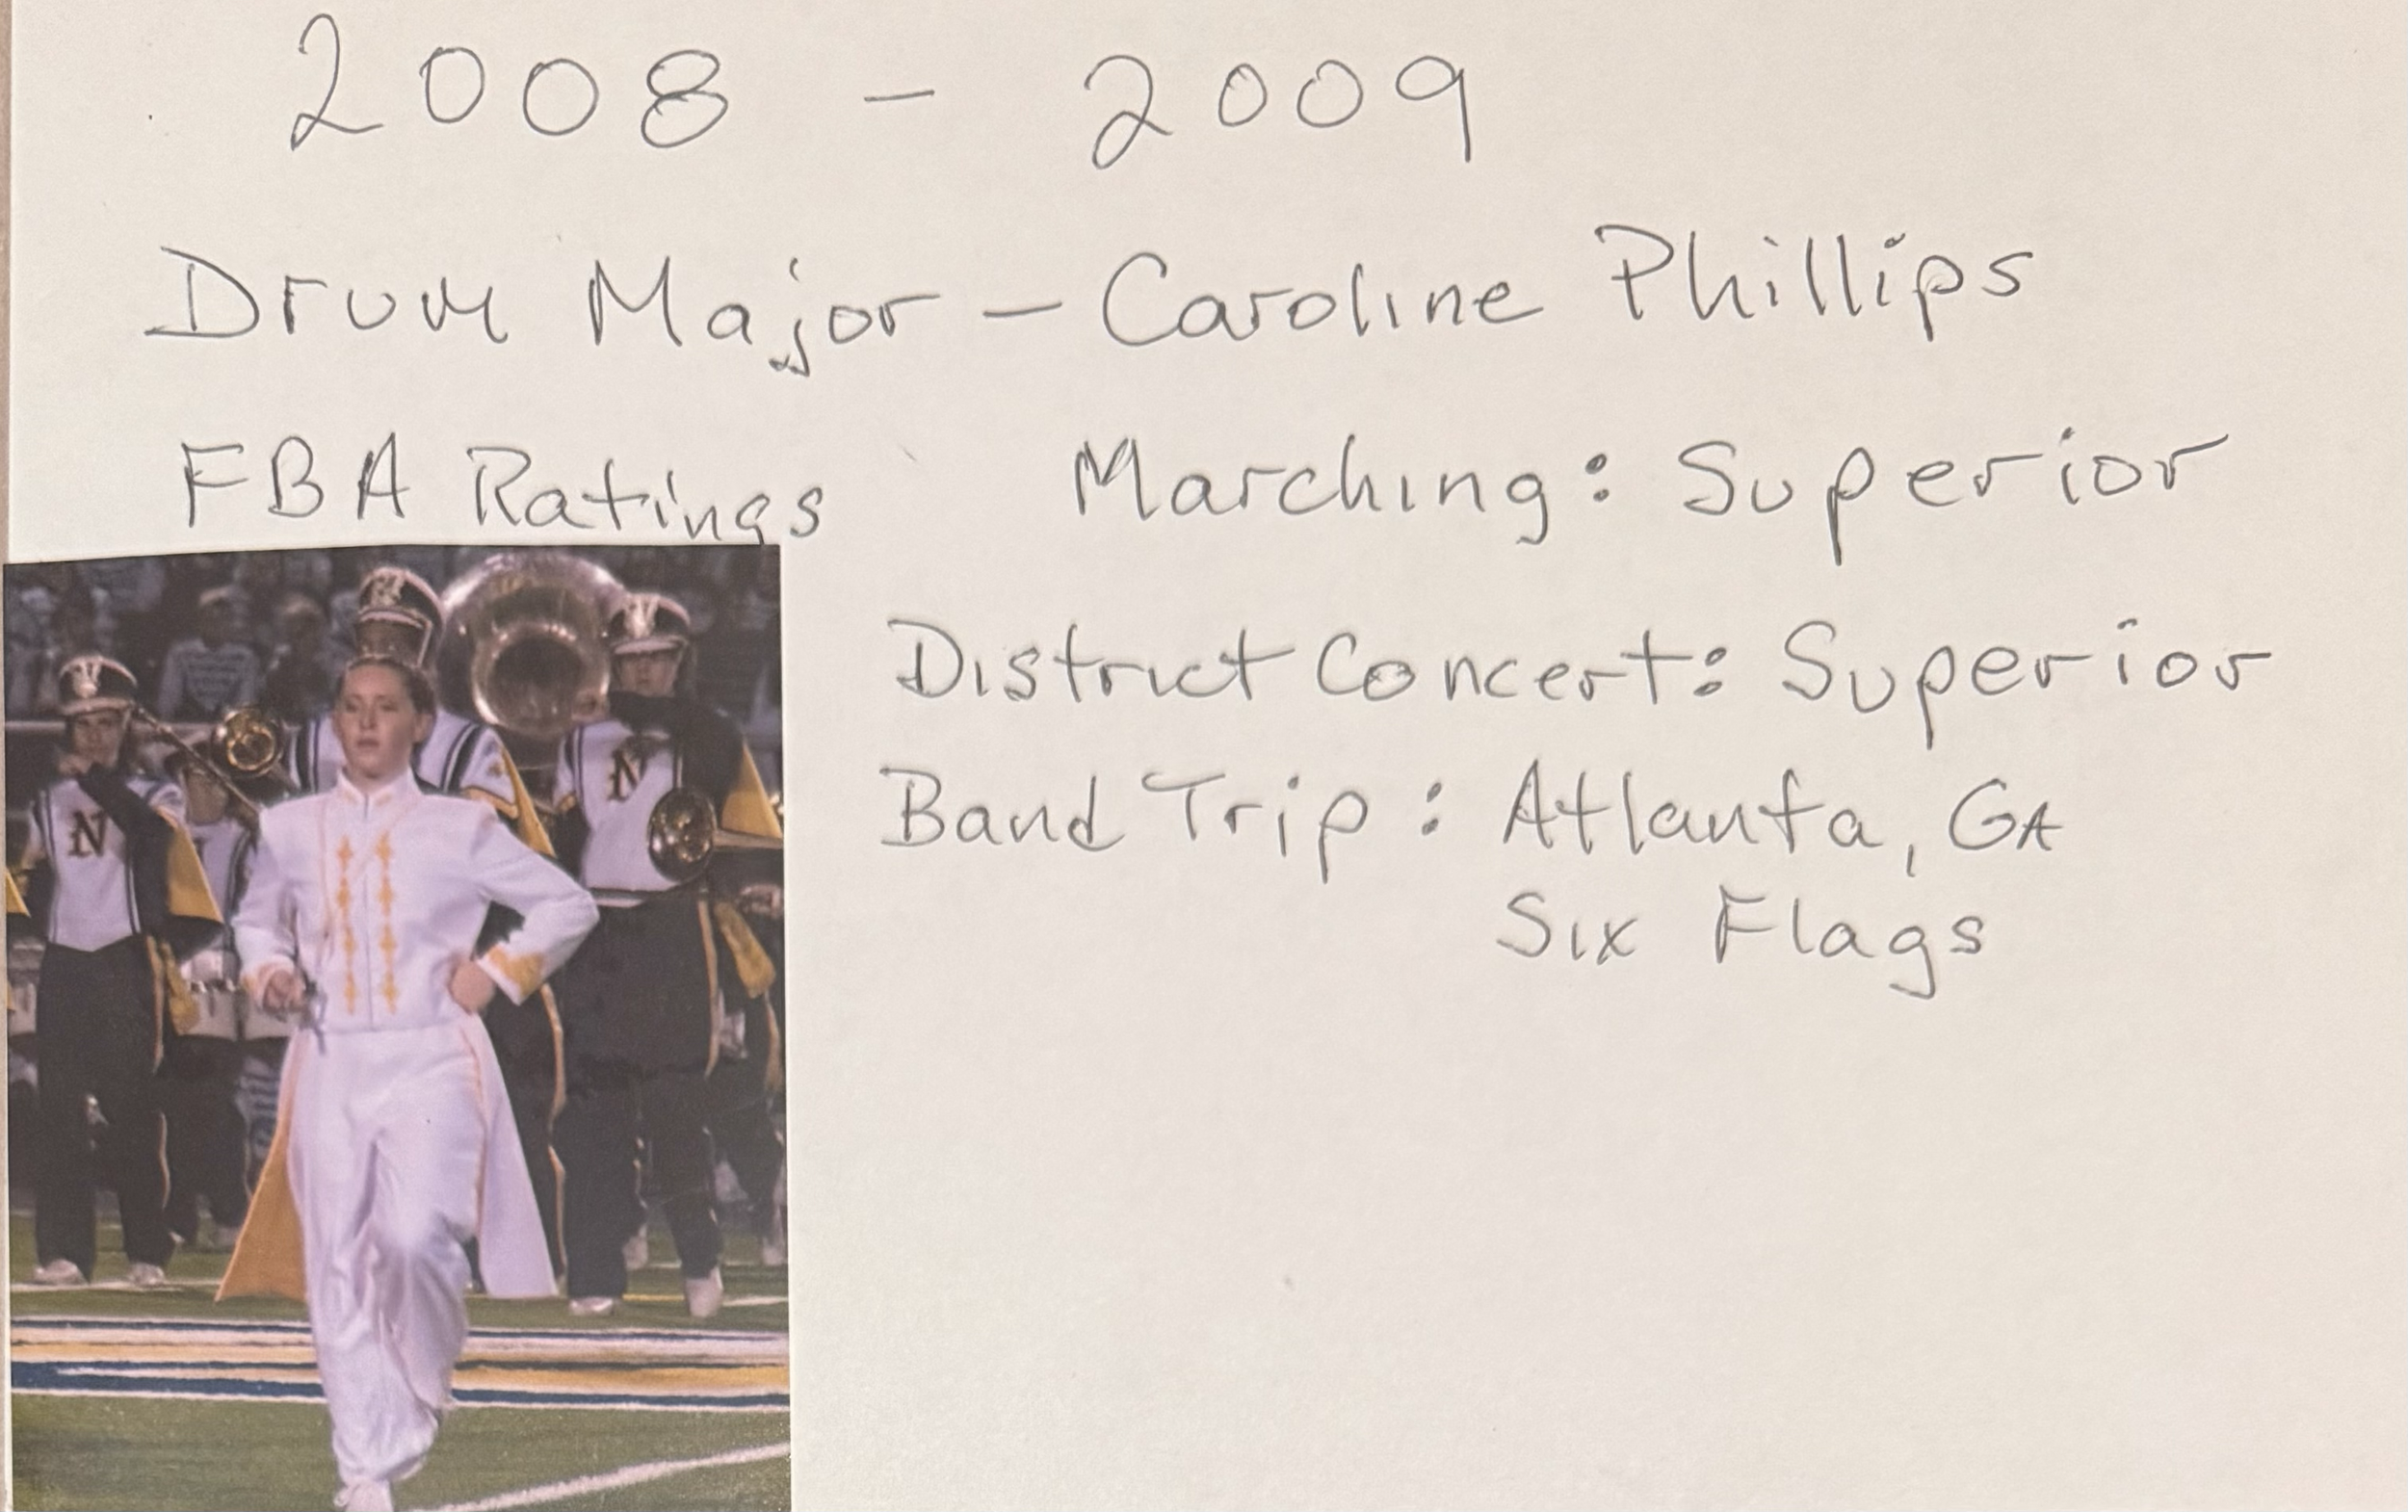 2008 - 2009
Drum Major - Caroline Phillips
FBA Ratings Marching: Superior
District Concert: Superior
Band Trip: Atlanta, GA
Six Flags
N
N